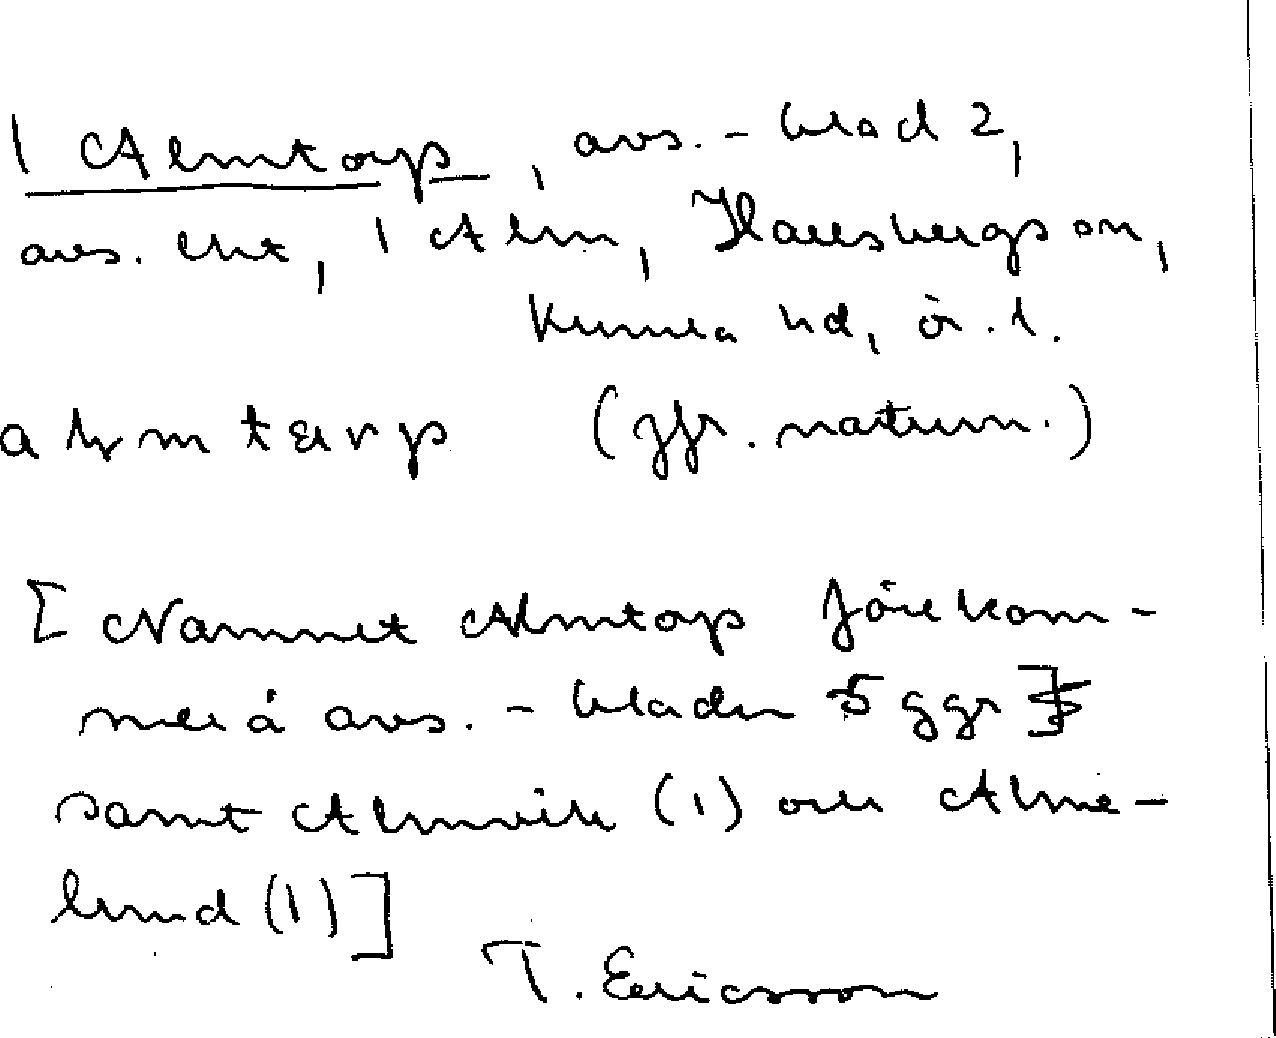 1 Almtorp, avs.-blad 2,
avs. ehet, 1 Alm, Hallsbergs sn,
Kumla hd, ör. l.
(jfr. naturn.)
[Namnet Almtorp förekom-
mer å avs.-bladen 5 ggr]
samt Almvik (1) och Alme-
lund (1)]
T. Ericsson